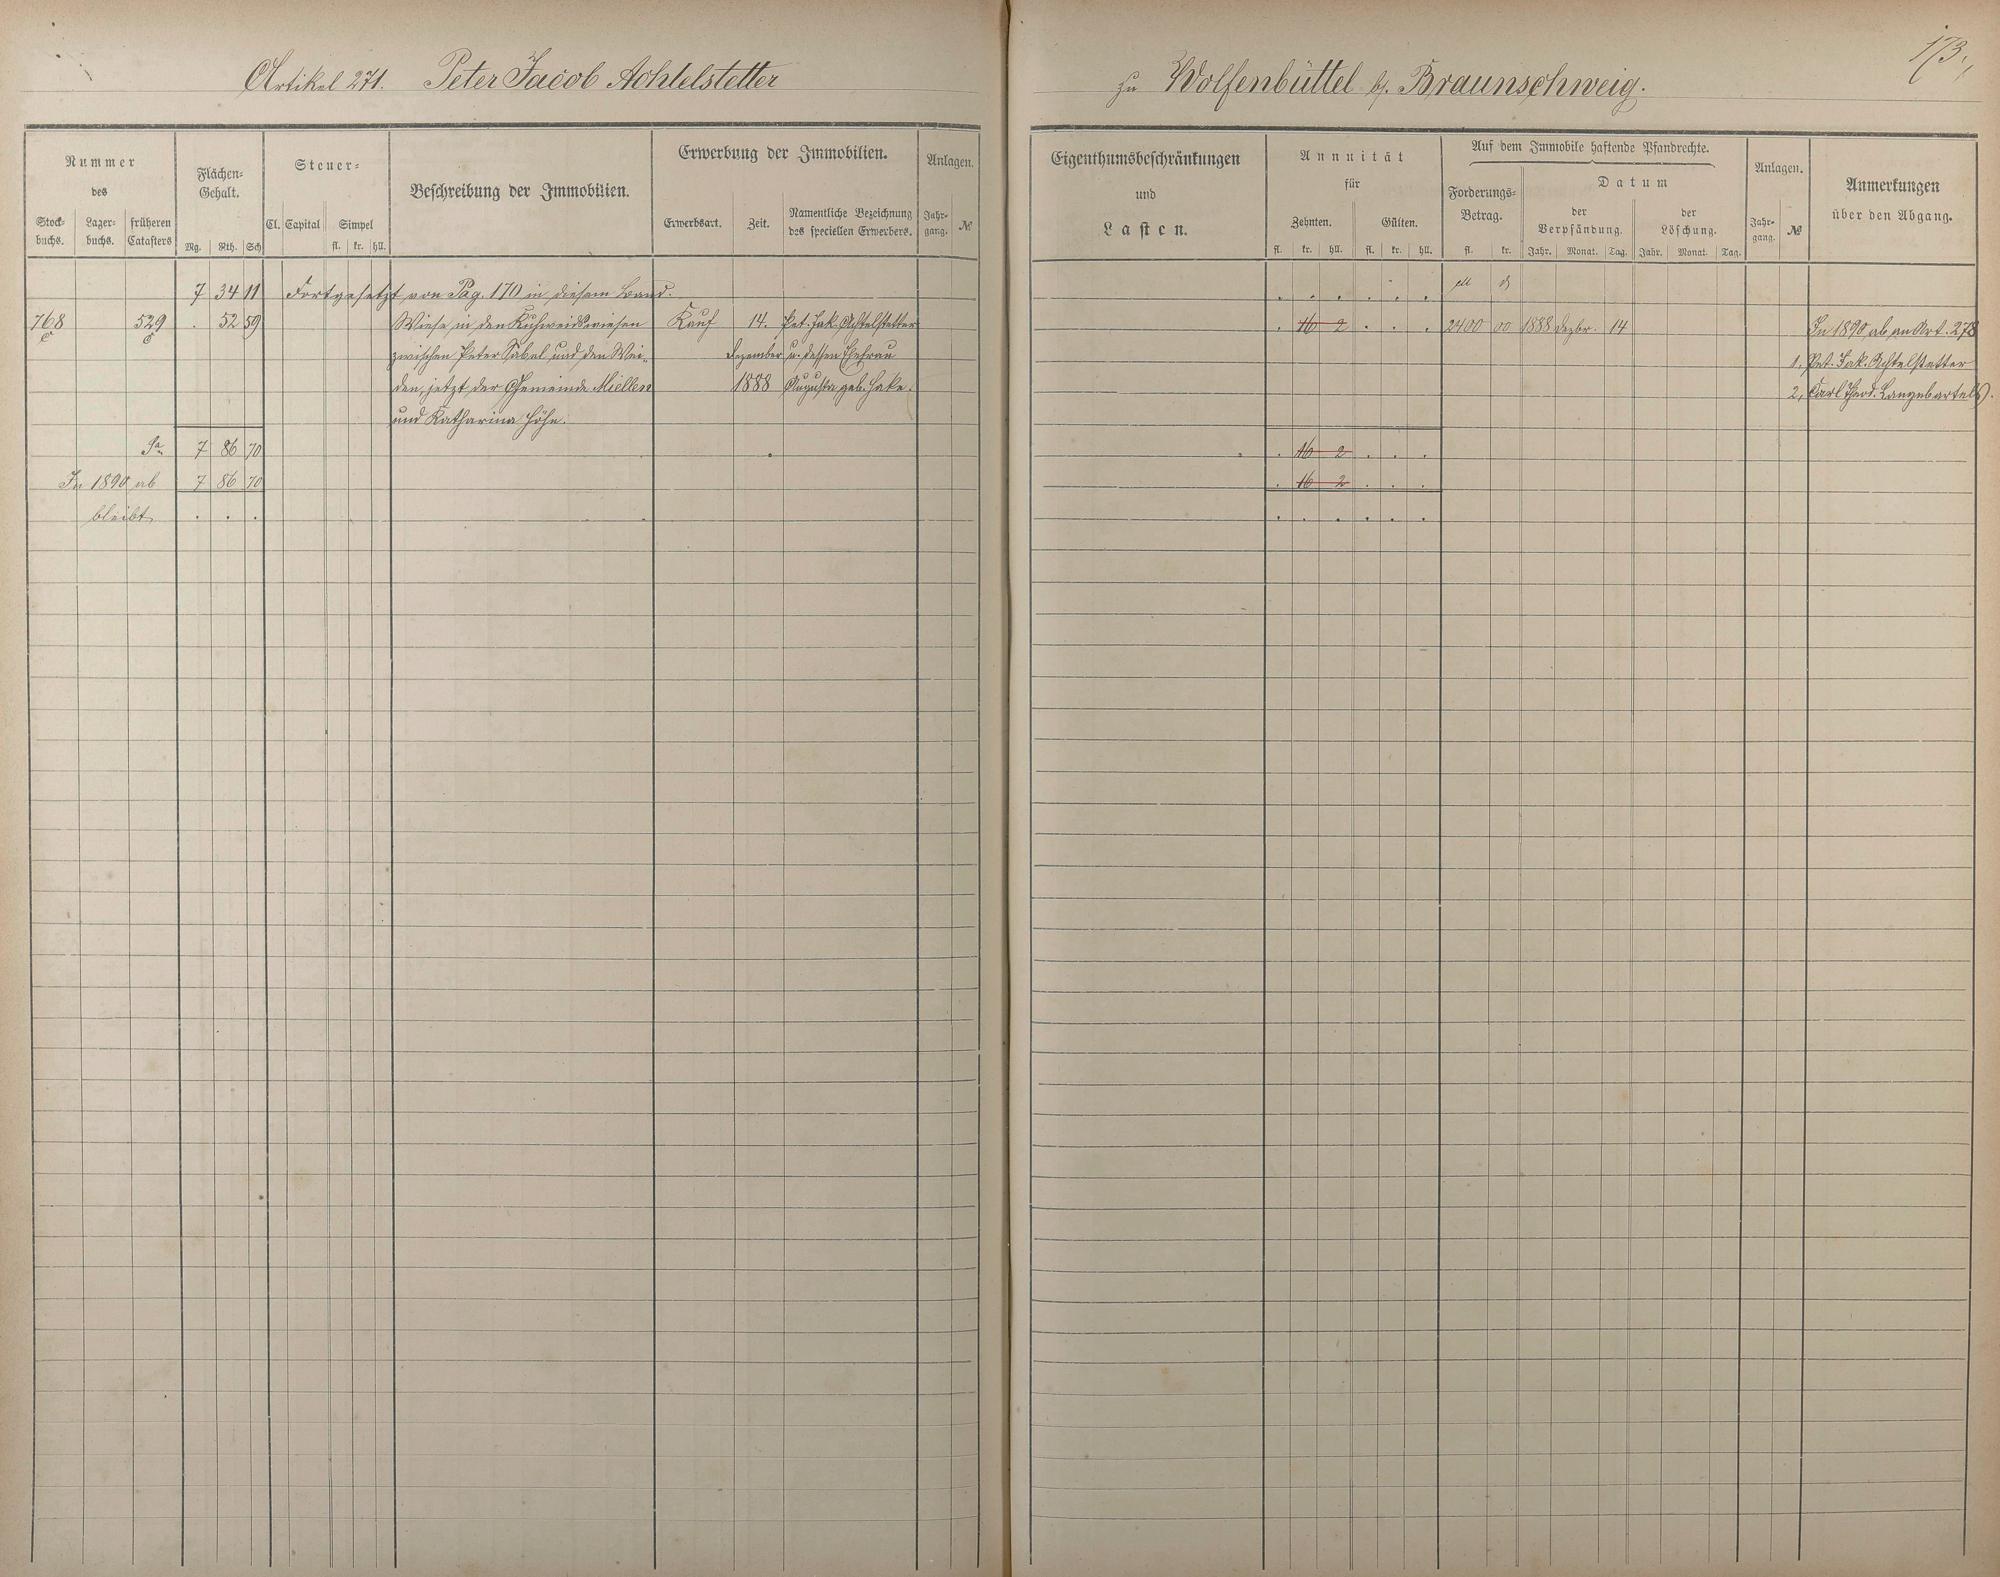 173.
Artikel 271. Peter Jacob Achtelstetter
zu Wolfenbüttel b/. Braunschweig.
Nummer
des
Stock-
buchs.
Lager-
buchs.
früheren
Catasters
Flächen-
Gehalt.
Mg. Rth. Sch
Steuer-
Cl. Capital Simpel
fl. kr. hll.
Beschreibung der Immobilien.
Erwerbung der Immobilien.
Erwerbsart. Zeit.
Namentliche Bezeichnung
des speciellen Erwerbers.
Anlagen.
Jahr-
gang. №
7 34 11 Fortgesetzt von Pag. 170 in diesem Band.
768 529 . 52 59 Wiese in den Kuhweidswiesen Kauf 14. Pet. Jak. Achtelstetter
c c zwischen Peter Sabel und den Wei- Dezember u. dessen Ehefrau
den, jetzt der Gemeinde Miellen 1888 Augusta geb. Hake.
und Katharina Höhn.
Sa 7 86 70
In 1890 ab 7 86 70
bleibt . . .
Eigenthumsbeschränkungen
und
Lasten.
Annuität
für
Zehnten. Gülten.
fl. kr. hll. fl. kr. hll.
Auf dem Immobile haftende Pfandrechte.
Forderungs-
Betrag.
fl. kr.
Datum
der
Verpfändung.
Jahr. Monat. Tag.
der
Löschung.
Jahr. Monat. Tag.
Anlagen.
Jahr-
gang. №
Anmerkungen
über den Abgang.
. . . . . .
. 16 2 . . . 2400 00 1888 Dezbr. 14 In 1890 ab an Art. 278
1. Pet. Jak. Achtelstetter
2, Carl Theod. Langebartels).
. 16 2 . . .
. 16 2 . . .
. . . . . .